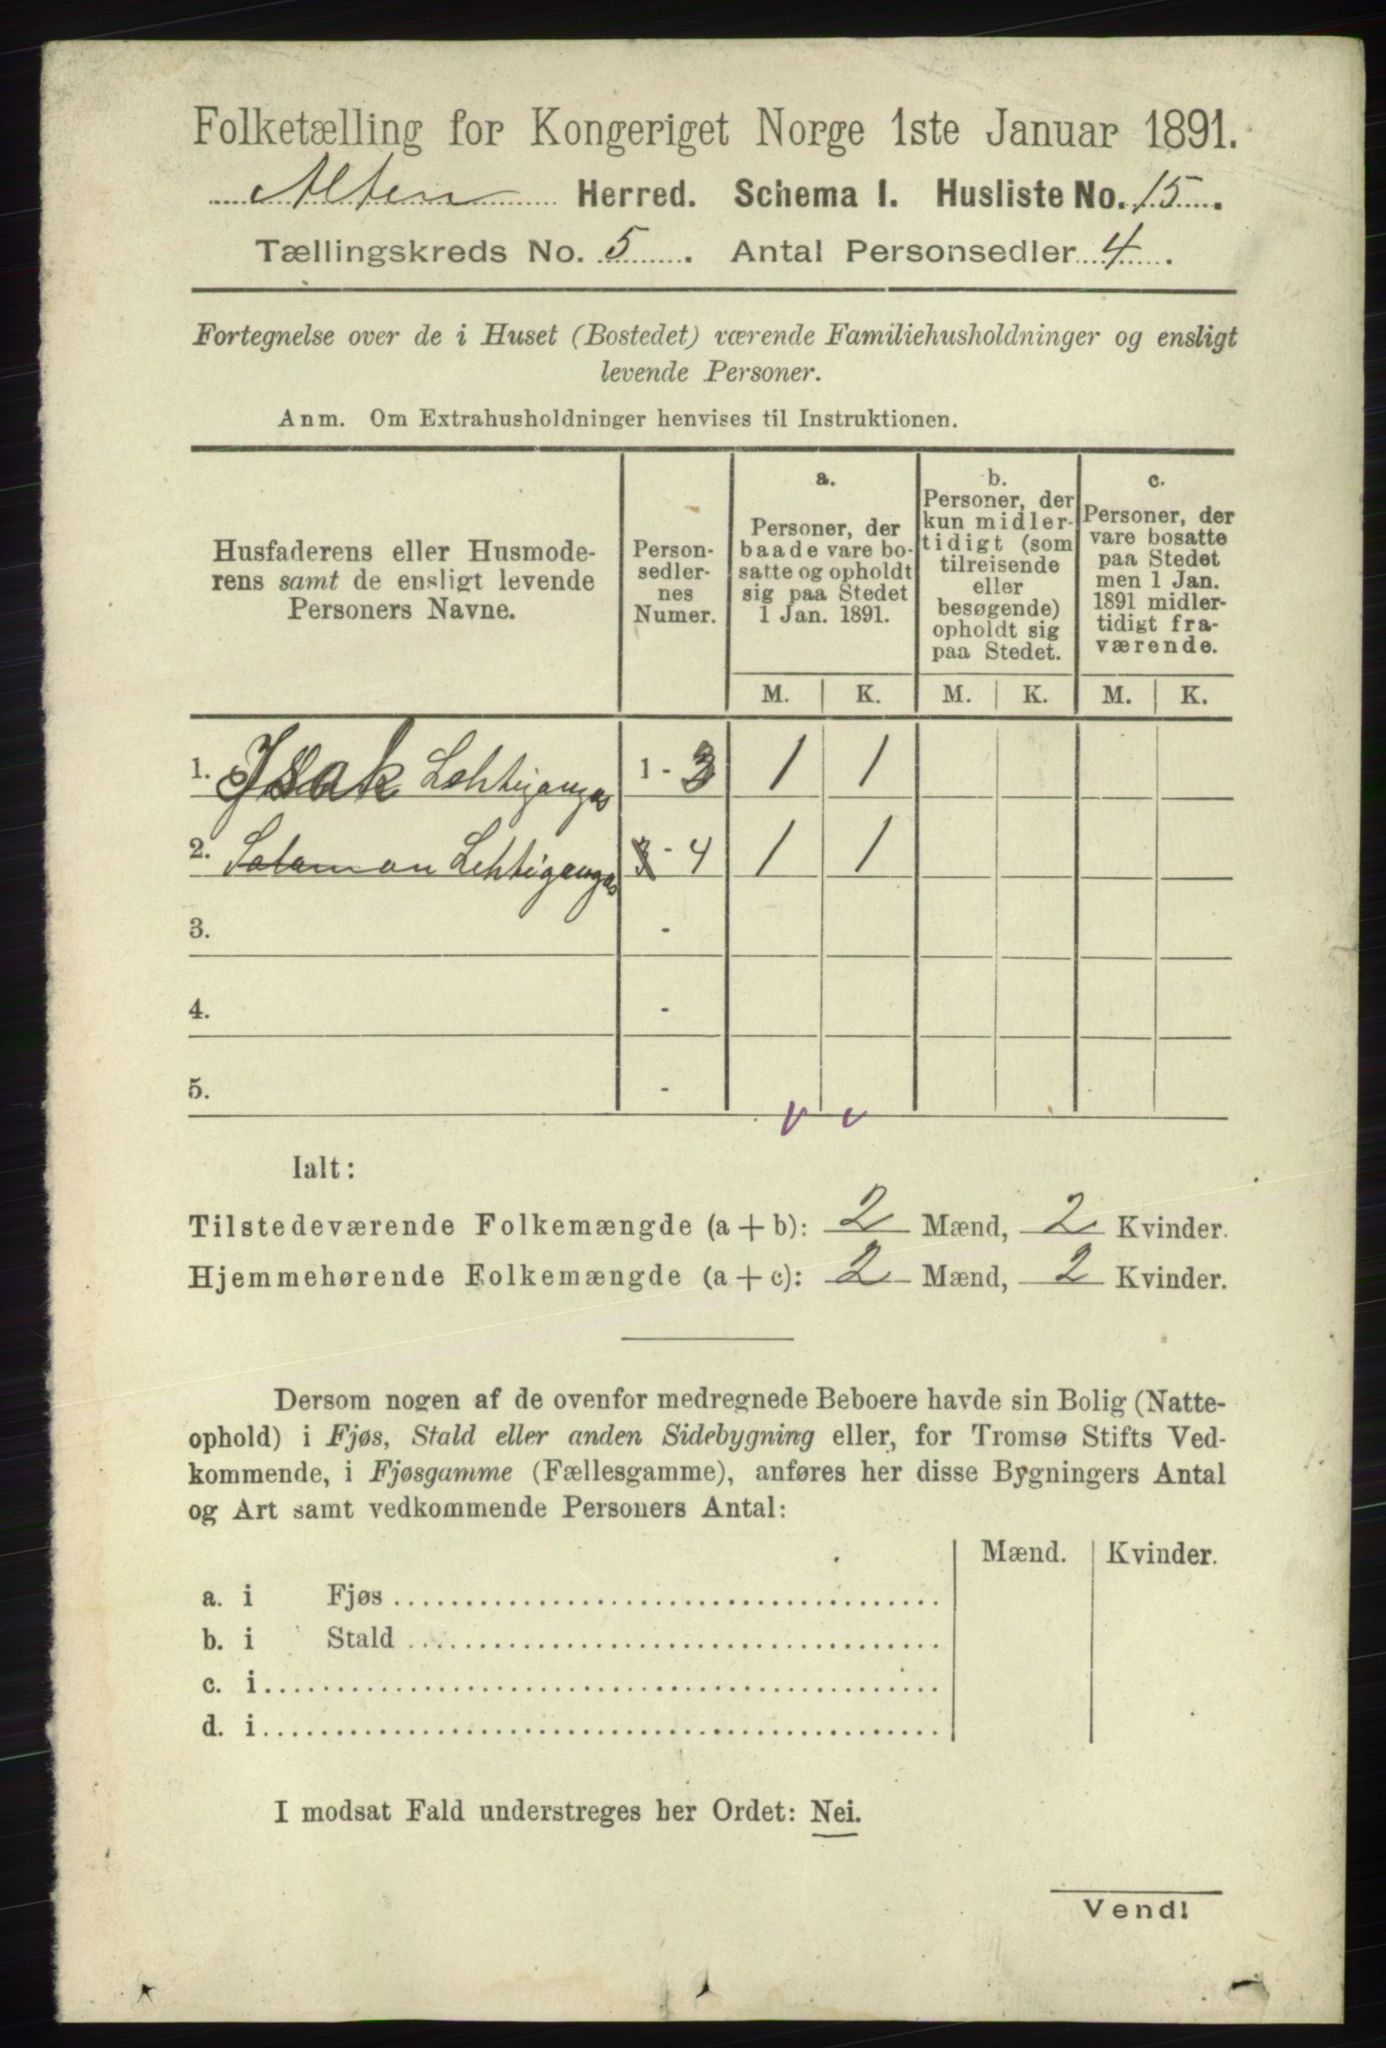 Folketælling for Kongeriget Norge 1ste Januar 1891.
Alten Herred. Schema I. Husliste No. 15.
Tællingskreds No. 5. Antal Personsedler 4.
Fortegnelse over de i Huset (Bostedet) værende Familiehusholdninger og ensligt
levende Personer.
Anm. Om Extrahusholdninger henvises til Instruktionen.
Husfaderens eller Husmode-
rens samt de ensligt levende
Personers Navne.
Person-
sedler-
nes
Numer.
a.
Personer, der
baade vare bo-
satte og opholdt
sig paa Stedet
1 Jan. 1891.
b.
Personer, der
kun midler-
tidigt (som
tilreisende
eller
besøgende)
opholdt sig
paa Stedet.
c.
Personer, der
vare bosatte
paa Stedet
men 1 Jan.
1891 midler-
tidigt fra-
værende.
M. K. M. K. M. K.
1. Isak Lehtigangas 1 - 3 1 1
2. Salamon Lehtigangas - 4 1 1
3. -
4. -
5. -
Ialt:
Tilstedeværende Folkemængde (a + b): 2 Mænd, 2 Kvinder.
Hjemmehørende Folkemængde (a + c): 2 Mænd, 2 Kvinder.
Dersom nogen af de ovenfor medregnede Beboere havde sin Bolig (Natte-
ophold) i Fjøs, Stald eller anden Sidebygning eller, for Tromsø Stifts Ved-
kommende, i Fjøsgamme (Fællesgamme), anføres her disse Bygningers Antal
og Art samt vedkommende Personers Antal:
Mænd. Kvinder.
a. i Fjøs
b. i Stald
c. i
d. i
I modsat Fald understreges her Ordet: Nei.
Vend!